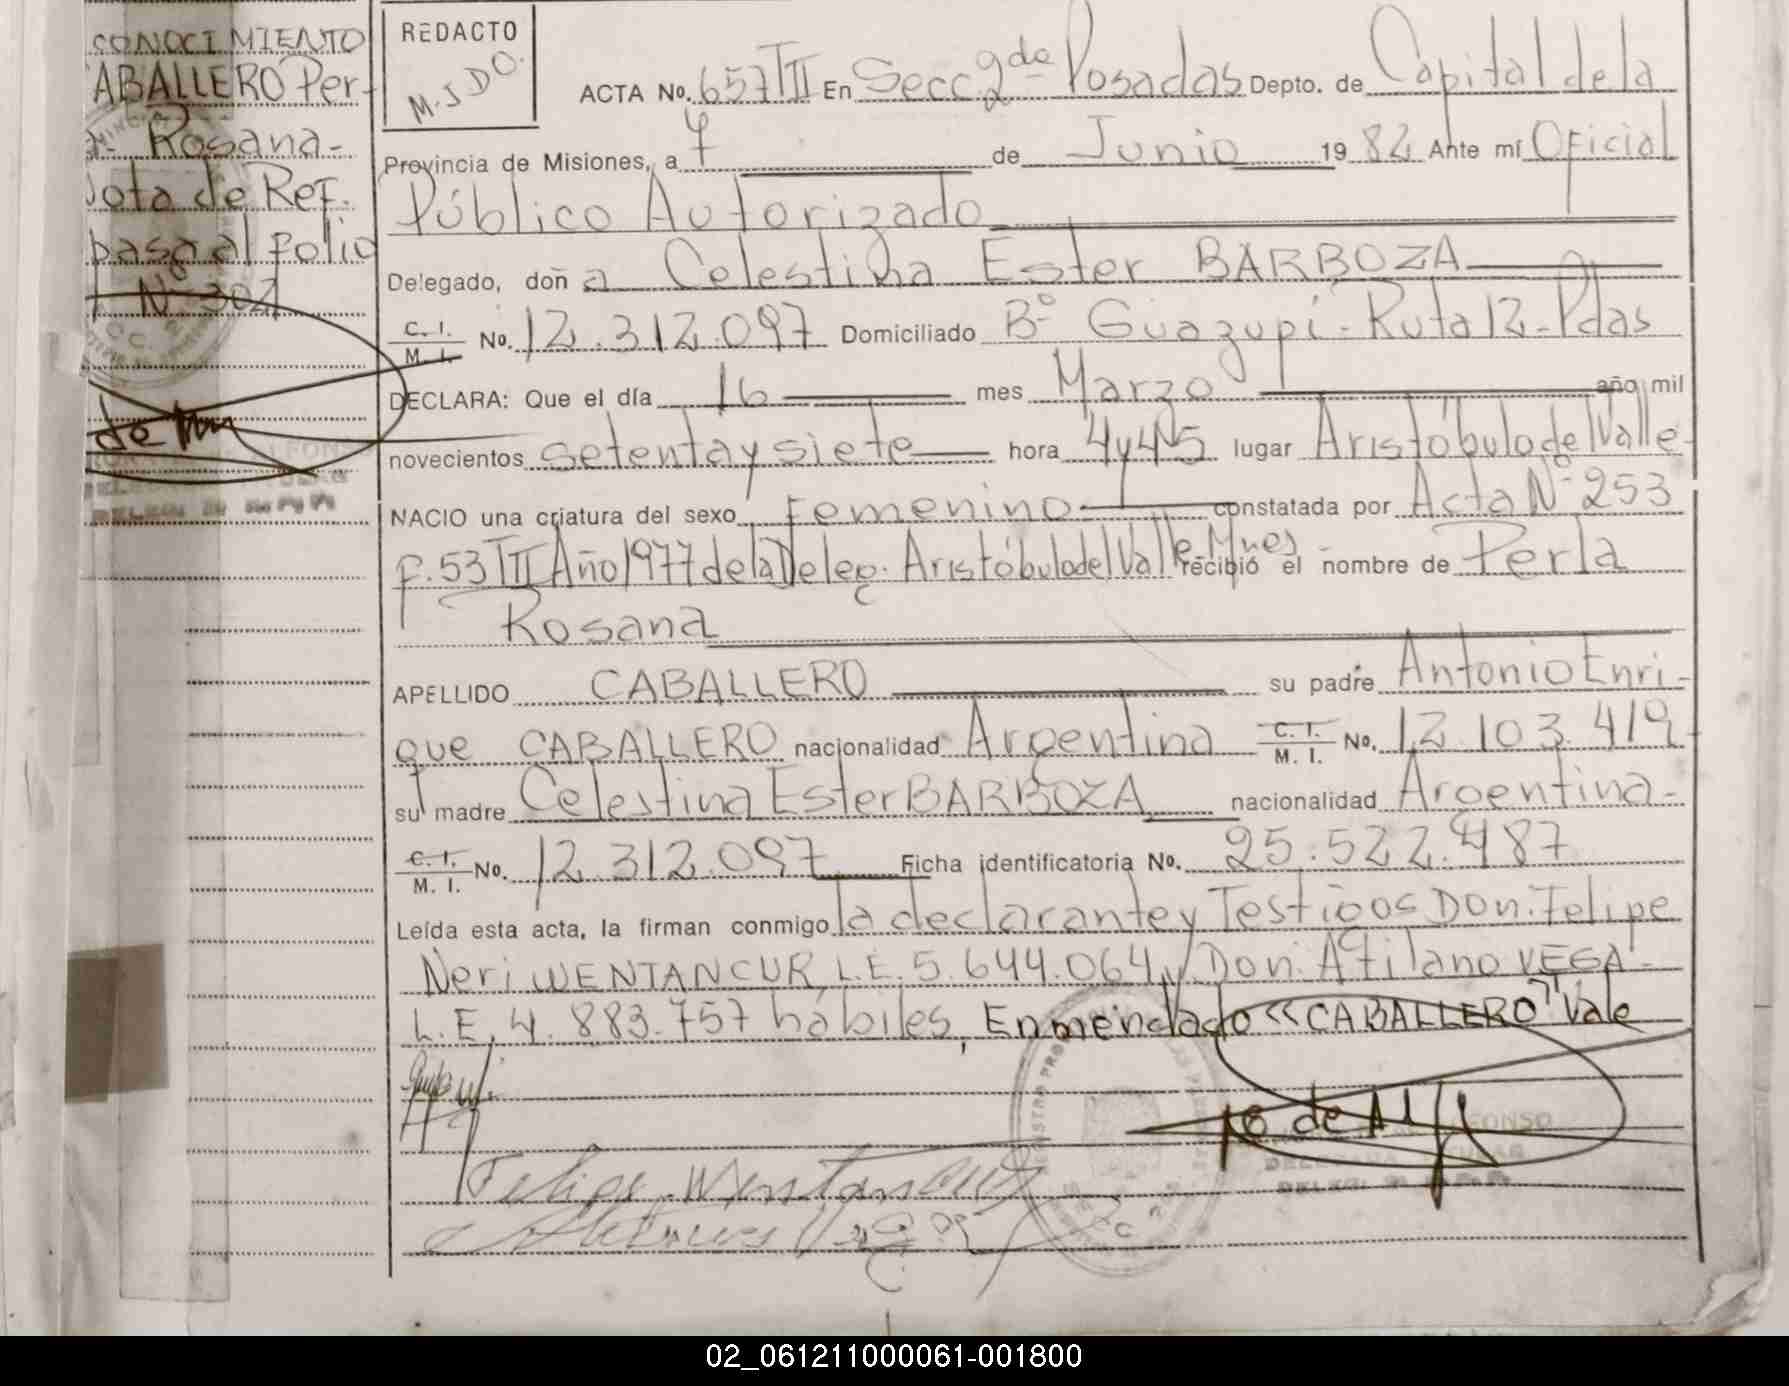 CONOCIMIENTO
CABALLERO Per-
Rosana-
Nota de Ref.
pasa al folio
Nº 302
REDACTO
M.J.D.O.
ACTA No. 657 TII En Secc. 2da Posadas Depto. de Capital de la
Provincia de Misiones, a 7 de Junio 1982 Ante mí Oficial
Público Autorizado
Delegado, doña Celestina Ester BARBOZA
C. I. M. I. No. 12.312.097 Domiciliado Bº Guazupi-Ruta 12-Pdas
DECLARA: Que el día 16 mes Marzo año mil
novecientos setenta y siete hora 4y45 lugar Aristóbulo del Valle-
NACIO una criatura del sexo Femenino constatada por Acta Nº 253
F. 53 TII Año 1977 de la Deleg. Aristóbulo del Valle Mnes- recibió el nombre de Perla
Rosana
APELLIDO CABALLERO su padre Antonio Enri-
que CABALLERO nacionalidad Argentina C. I. M. I. No. 12.103.419-
su madre Celestina Ester BARBOZA nacionalidad Argentina-
C. I. M. I. No. 12.312.097 Ficha identificatoria No. 25.522.487
Leída esta acta, la firman conmigo la declarante y Testigos Don. Felipe
Neri WENTANCUR, L.E. 5.644.064 y Don. Atilano VEGA-
L.E. 4.883.757 hábiles, Enmendado "CABALLERO" Vale
Felipe Wentancur
02_061211000061-001800